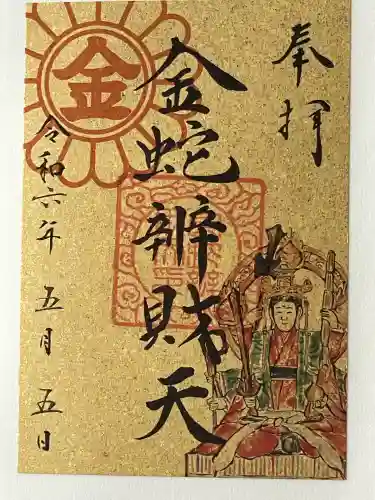 奉拝
金蛇辨財天
令和六年 五月 五日
金